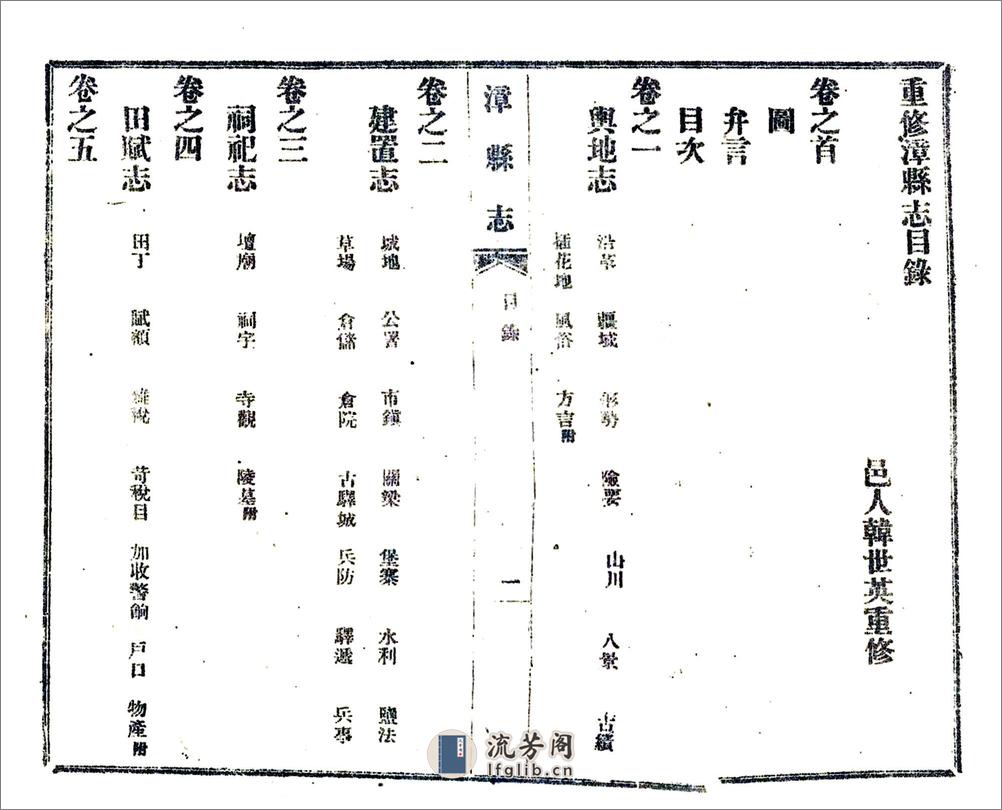 重修漳縣志目錄
邑人韓世英重修
卷之首
圖
弁言
目次
卷之一
輿地志 沿革 疆域 形勢 險要 山川 八景 古蹟
插花地 風俗 方言附
漳縣志 目錄 一
卷之二
建置志 城池 公署 市鎮 關梁 堡寨 水利 鹽法
草場 倉儲 倉院 古驛城 兵防 驛遞 兵事
卷之三
祠祀志 壇廟 祠宇 寺觀 陵墓附
卷之四
田賦志 田丁 賦額 雜稅 苛稅目 加收警餉 戶口 物產附
卷之五
流芳阁
lfglib.cn